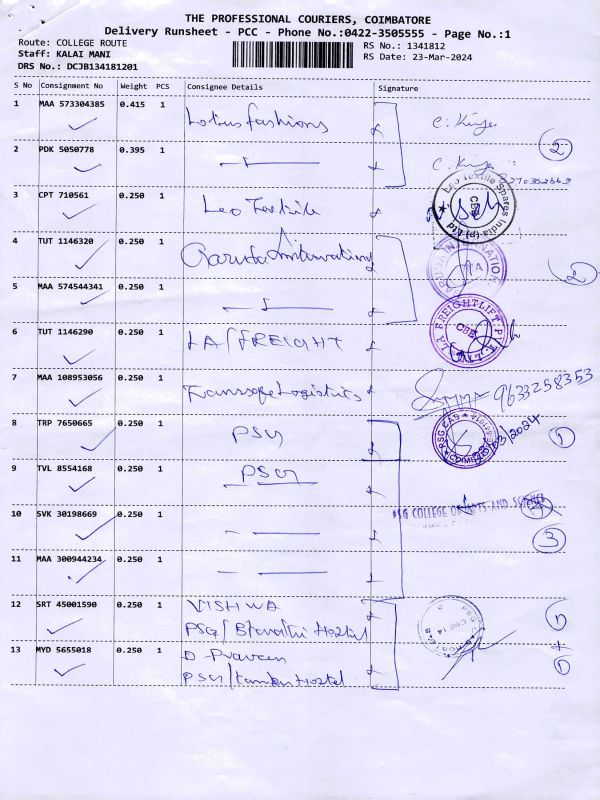 THE PROFESSIONAL COURIERS, COIMBATORE
Delivery Runsheet - PCC - Phone No.:0422-3505555 - Page No.:1
Route: COLLEGE ROUTE
RS No.: 1341812
Staff: KALAI MANI
RS Date: 23-Mar-2024
DRS No.: DCJB134181201
S No Consignment No Weight PCS Consignee Details Signature
1 MAA 573304385 0.415 1 Lotus fashions
2 PDK 5050778 0.395 1
2
3 CPT 710561 0.250 1 Leo Textile
Leo Textile Spares India (p) Ltd
CBE
4 TUT 1146320 0.250 1 Garuda
2
5 MAA 574544341 0.250 1
6 TUT 1146290 0.250 1 LA/FREIGHT
LA FREIGHTLIFT
CBE
7 MAA 108953056 0.250 1 Transsafe Logistics
9633258353
8 TRP 7650665 0.250 1 PSG
PSG CAS
COIMBATORE
1
9 TVL 8554168 0.250 1 PSG
10 SVK 30198669 0.250 1
PSG COLLEGE OF ARTS AND SCIENCE
3
11 MAA 300944234 0.250 1
12 SRT 45001590 0.250 1 VISHWA
PSG/Bharathi Hostel
1
+
13 MYD 5655018 0.250 1 D Praveen
1